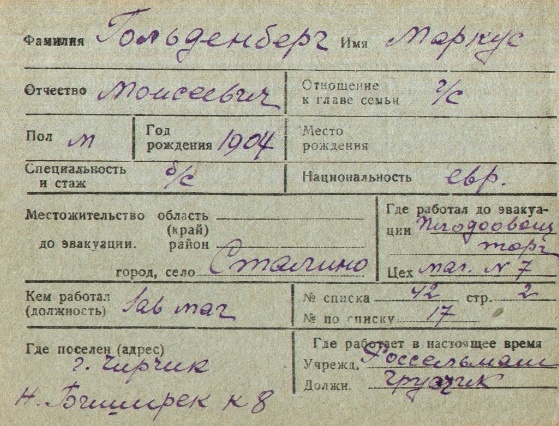 Фамилия Гольденберг Имя Маркус
Отчество Моисеевич Отношение к главе семьи г/с
Пол м Год рождения 1904 Место рождения
Специальность и стаж б/с Национальность евр.
Местожительство область
(край)
до эвакуации. район
город, село Сталино
Где работал до эвакуа-
ции Плодоовощ
торг
Цех маг. N 7
Кем работал
(должность) Зав маг
№ списка 42 стр. 2
№ по списку 17
Где поселен (адрес)
г. Чирчик
к 8
Где работает в настоящее время
Учрежд. Россельмаш
Должн. грузчик